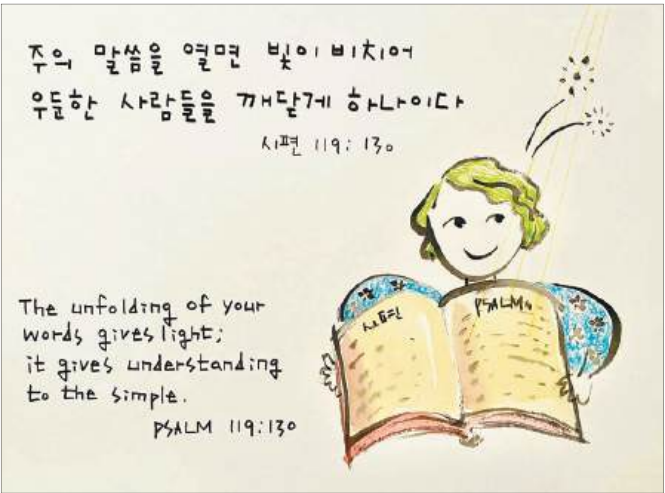 주의 말씀을 열면 빛이 비치어
우둔한 사람들을 깨닫게 하나이다
시편 119:130
The unfolding of your
words gives light;
it gives understanding
to the simple.
PSALM 119:130
시편
PSALM